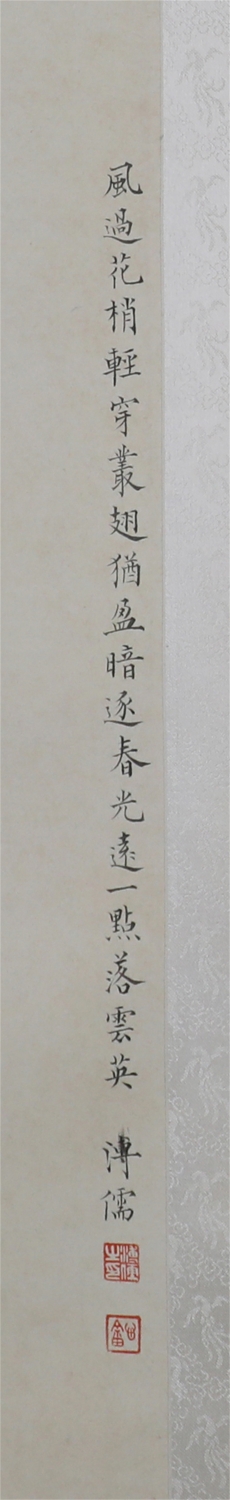 風過花梢輕穿叢翅猶盈暗逐春光遠一點落雲英 溥儒